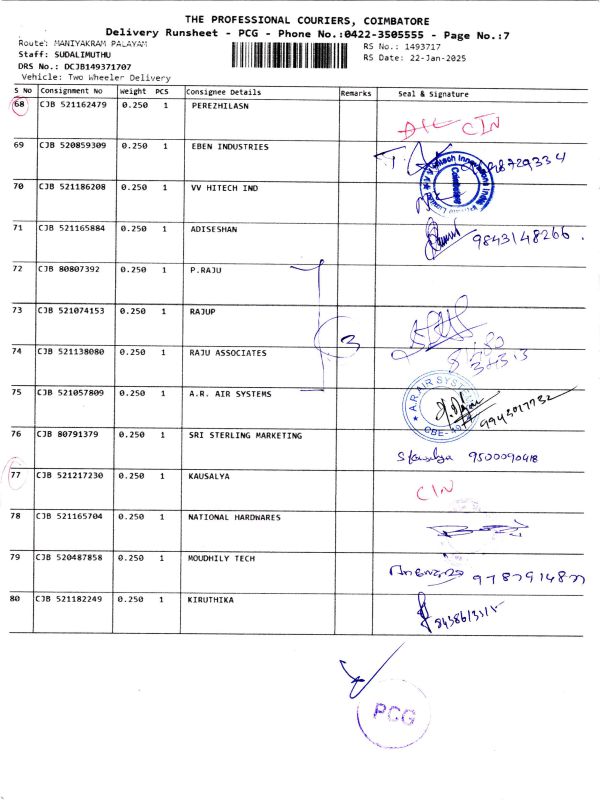 THE PROFESSIONAL COURIERS, COIMBATORE
Delivery Runsheet - PCG - Phone No.:0422-3505555 - Page No.:7
Route: MANIYAKRAM PALAYAM
RS No.: 1493717
Staff: SUDALIMUTHU
RS Date: 22-Jan-2025
DRS No.: DCJB149371707
Vehicle: Two Wheeler Delivery
S No Consignment No Weight PCS Consignee Details Remarks Seal & Signature
68 CJB 521162479 0.250 1 PEREZHILASN
CIN
69 CJB 520859309 0.250 1 EBEN INDUSTRIES
70 CJB 521186208 0.250 1 VV HITECH IND
71 CJB 521165884 0.250 1 ADISESHAN 9843148266.
72 CJB 80807392 0.250 1 P.RAJU
73 CJB 521074153 0.250 1 RAJUP
3
74 CJB 521138080 0.250 1 RAJU ASSOCIATES
75 CJB 521057809 0.250 1 A.R. AIR SYSTEMS
A.R AIR SYSTEMS
76 CJB 80791379 0.250 1 SRI STERLING MARKETING
9500090418
77 CJB 521217230 0.250 1 KAUSALYA
CIN
78 CJB 521165704 0.250 1 NATIONAL HARDWARES
79 CJB 520487858 0.250 1 MOUDHILY TECH
80 CJB 521182249 0.250 1 KIRUTHIKA
PCG